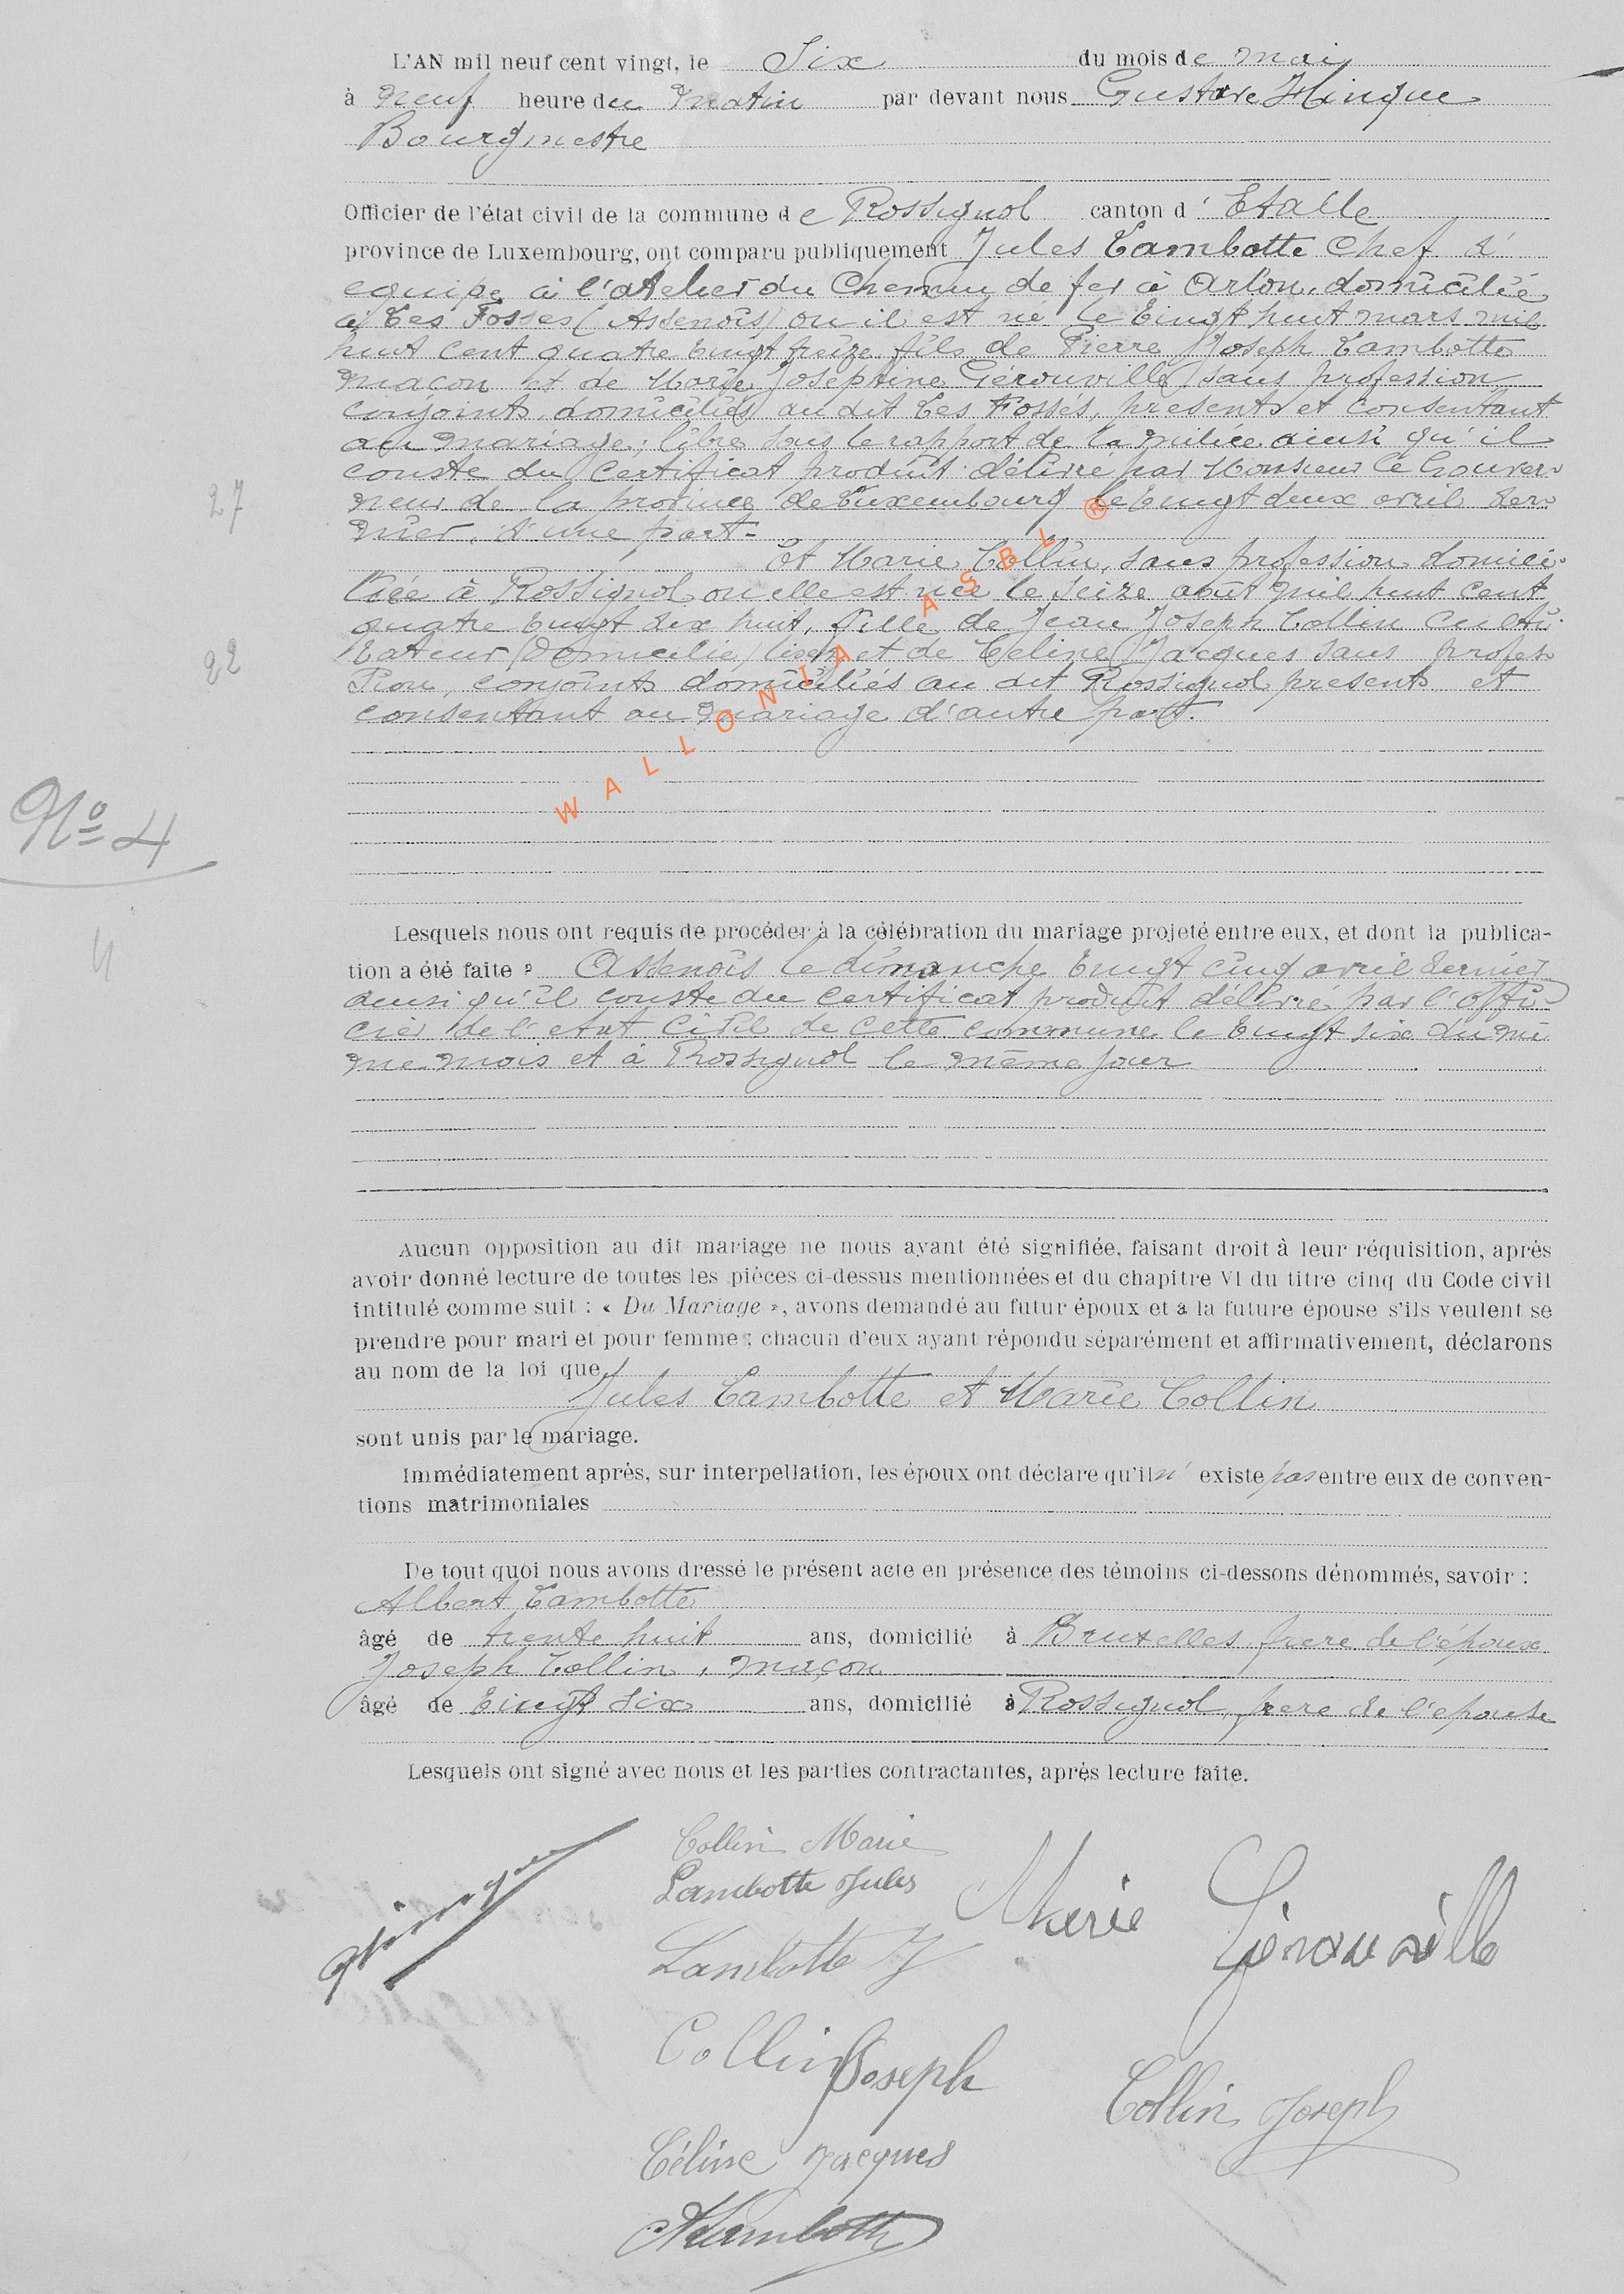 L'AN mil neuf cent vingt, le Six du mois de mai
à neuf heure du matin par devant nous Gustave Hinque
Bourgmestre
Officier de l'état civil de la commune de Rossignol canton d'Etalle
province de Luxembourg, ont comparu publiquement Jules Lambotte Chef d'
equipe à l'atelier du Chemin de fer à Arlon, domicilié
à Les Fosses (Assenois) ou il est né le vingt huit mars mil
huit cent quatre vingt treize fils de Pierre Joseph Lambotte
maçon et de Marie Joséphine Gérouville sans profession
conjoints domiciliés au dit Les Fossés, présents et consentant
au mariage; libre sous le rapport de la milice ainsi qu'il
conste du Certificat produit délivré par Monsieur le Gouver-
27
neur de la province de Luxembourg le vingt deux avril der-
nier, d'une part-
Et Marie Collin, sans profession domici-
liée à Rossignol où elle est née le seize août mil huit cent
quatre vingt dix huit, fille de Jean Joseph Collin Culti-
22
vateur (Domicilie) lisez et de Céline Jacques sans profes-
sion, conjoints domiciliés au dit Rossignol présents et
consentant au mariage d'autre part.
WALLONIA ASBL ®
No 4
4
Lesquels nous ont requis de procéder à la célébration du mariage projeté entre eux, et dont la publica-
tion a été faite à Assenois le dimanche vingt cinq avril dernier
ainsi qu'il conste du certificat produit délivré par l'offi-
cier de l'etat Civil de cette commune le vingt six du mê
me mois et à Rossignol le même jour
Aucun opposition au dit mariage ne nous ayant été signifiée, faisant droit à leur réquisition, après
avoir donné lecture de toutes les pièces ci-dessus mentionnées et du chapitre VI du titre cinq du Code civil
intitulé comme suit : « Du Mariage », avons demandé au futur époux et à la future épouse s'ils veulent se
prendre pour mari et pour femme ; chacun d'eux ayant répondu séparément et affirmativement, déclarons
au nom de la loi que
Jules Lambotte et Marie Collin
sont unis par le mariage.
Immédiatement après, sur interpellation, les époux ont déclare qu'il n'existe pas entre eux de conven-
tions matrimoniales
De tout quoi nous avons dressé le présent acte en présence des témoins ci-dessons dénommés, savoir :
Albert Lambotte
âgé de trente huit ans, domicilié à Bruxelles frere de l'époux
Joseph Collin, maçon
âgé de vingt six ans, domicilié à Rossignol, frere de l'épouse
Lesquels ont signé avec nous et les parties contractantes, après lecture faite.
Collin Marie
Lambotte Jules
Marie Gérouville
Hinque
Lambotte J
Collin Joseph
Collin Joseph
Céline Jacques
ALambotte